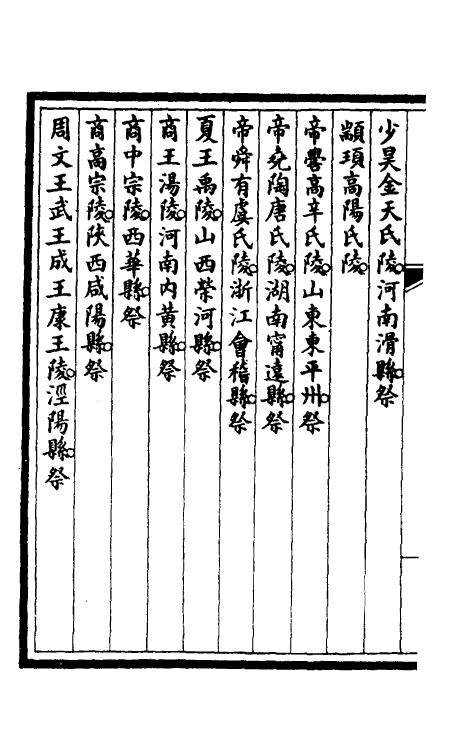 少昊金天氏陵。河南滑縣。祭
顓頊高陽氏陵。
帝嚳高辛氏陵。山東東平州。祭
帝堯陶唐氏陵。湖南甯遠縣。祭
帝舜有虞氏陵。浙江會稽縣。祭
夏王禹陵。山西榮河縣。祭
商王湯陵。河南内黄縣。祭
商中宗陵。西華縣。祭
商高宗陵。陜西咸陽縣。祭
周文王武王成王康王陵。涇陽縣。祭